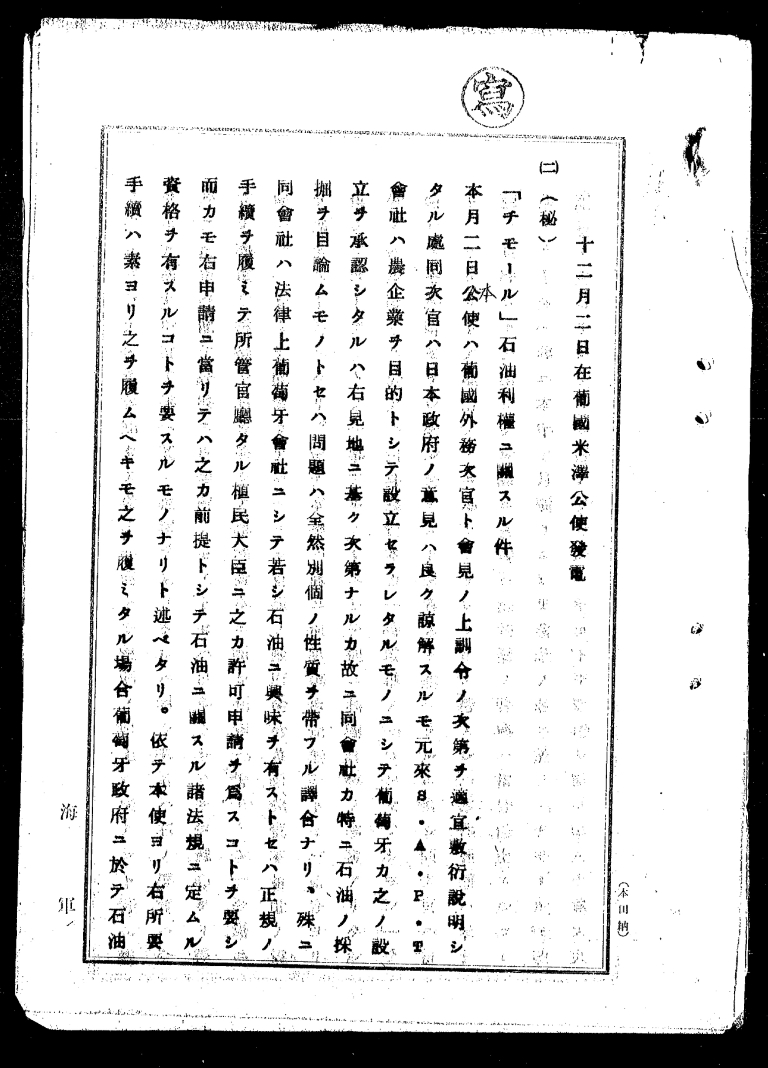 寫
十二月二日在葡國米澤公使發電
㈡(秘)
「チモール」石油利權ニ關スル件
本月二日公使ハ葡國外務次官ト會見ノ上訓令ノ次第ヲ適宜敷衍說明シ
本
タル處同次官ハ日本政府ノ意見ハ良ク諒解スルモ元來S・A・P・T
會社ハ農企業ヲ目的トシテ設立セラレタルモノニシテ葡萄牙カ之ノ設
立ヲ承認シタルハ右見地ニ基ク次第ナルカ故ニ同會社カ特ニ石油ノ採
掘ヲ目論ムモノトセハ問題ハ全然別個ノ性質ヲ帶フル譯合ナリ、殊ニ
同會社ハ法律上葡萄牙會社ニシテ若シ石油ニ興味ヲ有ストセハ正規ノ
手續ヲ履ミテ所管官廳タル植民大臣ニ之カ許可申請ヲ爲スコトヲ要シ
而カモ右申請ニ當リテハ之カ前提トシテ石油ニ關スル諸法規ニ定ムル
資格ヲ有スルコトヲ要スルモノナリト述ヘタリ。依テ本使ヨリ右所要
手續ハ素ヨリ之ヲ履ムヘキモ之ヲ履ミタル場合葡萄牙政府ニ於テ石油
海軍
(本田納)